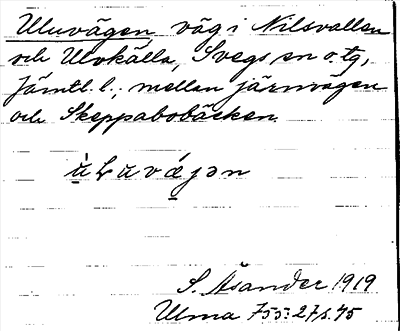 Uluvägen väg i Nilsvallen
och Ulvkälla, Svegs sn o. tg,
Jämtl. l.; mellan järnvägen
och Skeppabobäcken.
S. Åsander 1919
Ulma 755: 27 s. 45